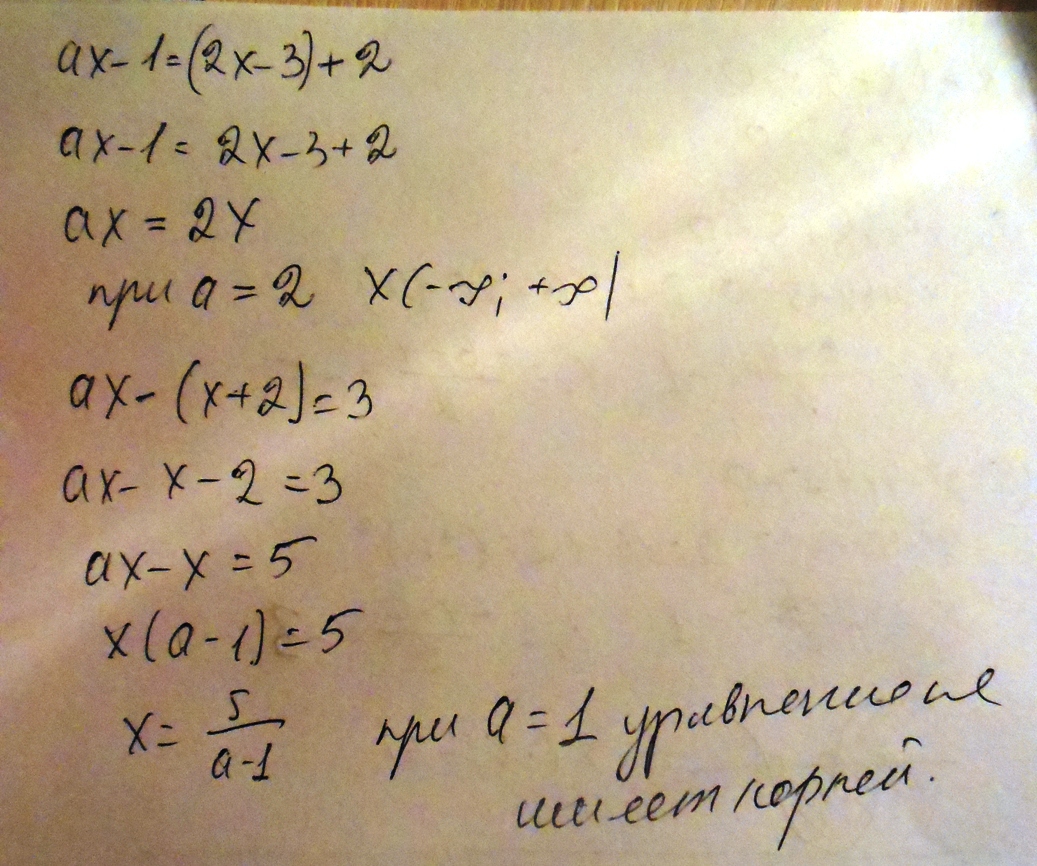 ax-1=(2x-3)+2
ax-1= 2x-3+2
ax = 2x
при a = 2 x(-∞; +∞)
ax- (x+2)=3
ax- x-2 =3
ax-x = 5
x(a-1)=5
x= 5/(a-1) при a=1 уравнение не
имеет корней.